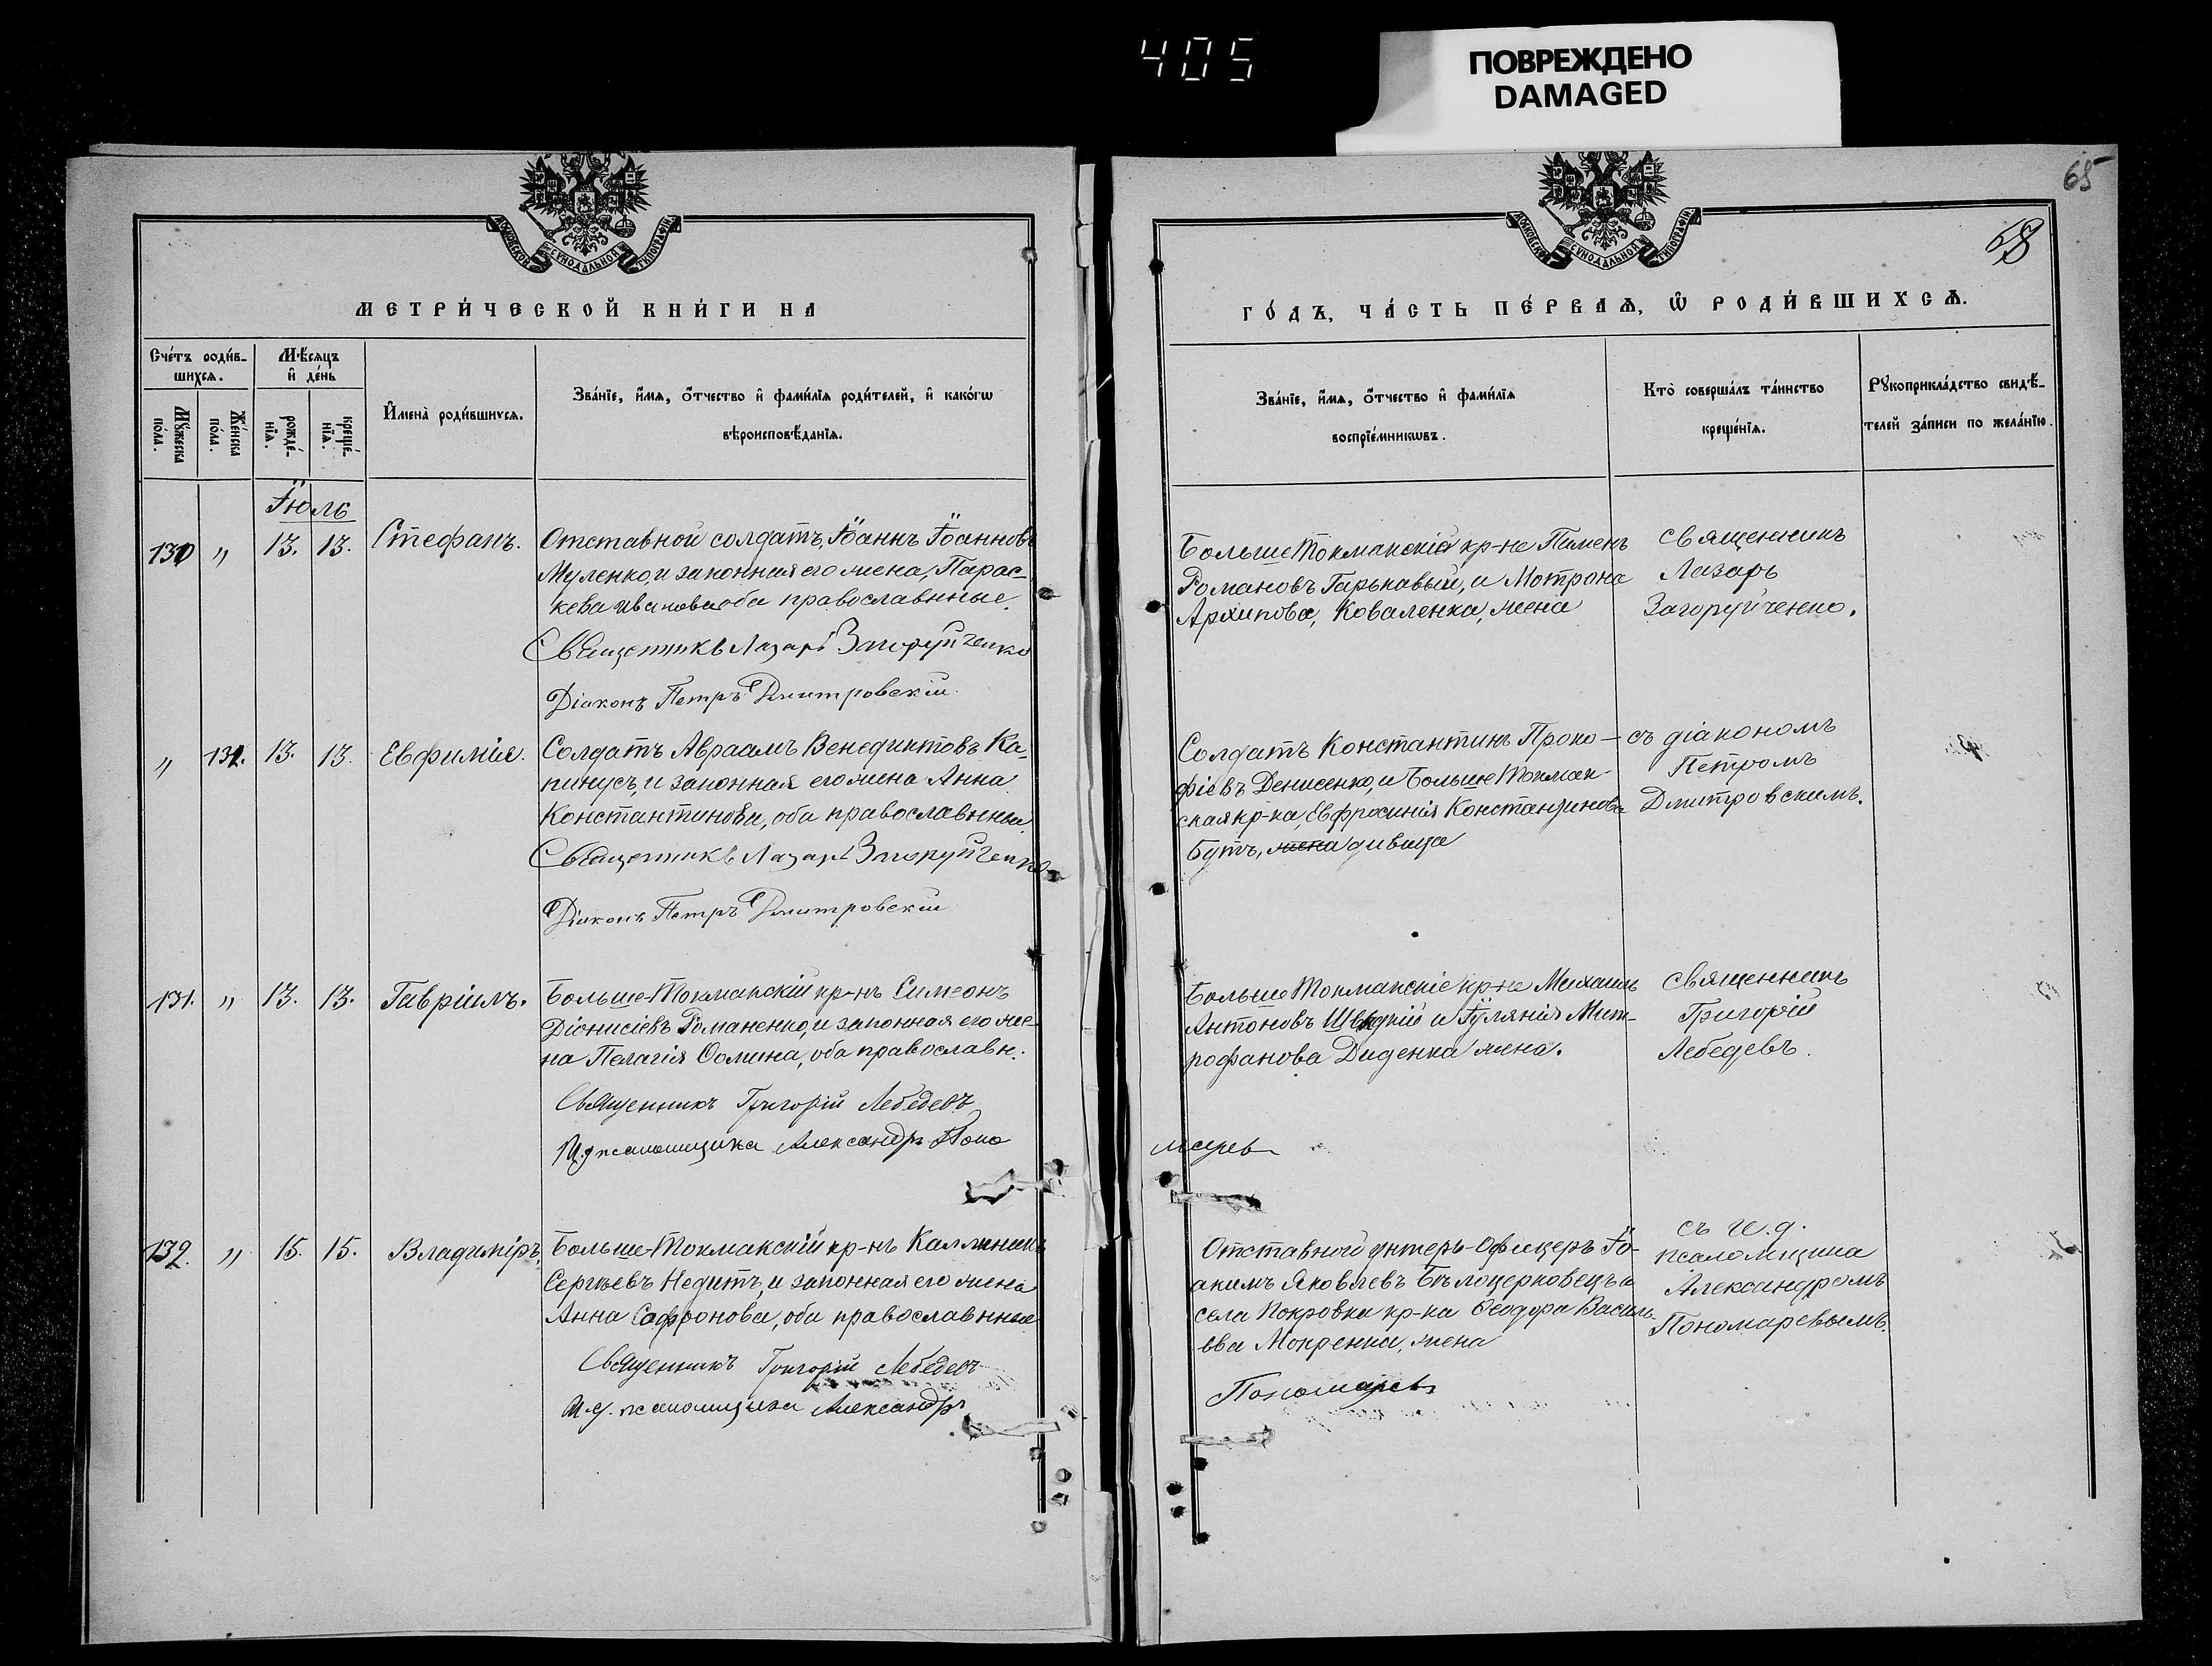 405
ПОВРЕЖДЕНО
DAMAGED
65
68
МОСКОВСКОЙ СѴНОДАЛЬНОЙ ТИПОГРАФІИ
МОСКОВСКОЙ СѴНОДАЛЬНОЙ ТИПОГРАФІИ
МЕТРИ́ЧЕСКОЙ КНИ́ГИ НА
ГО́ДЪ, ЧА́СТЬ ПЕ́РВАѦ, Ѿ РОДИ́ВШИХСѦ.
Сче́тъ роди́в-
шихсѧ.
Мꙋ́жеска
по́ла.
Же́нска
по́ла.
Мѣ́сяцъ
и де́нь
рожде́-
нїѧ.
креще́-
нїѧ.
Имена̀ роди́вшихсѧ.
Зва́нїе, и́мѧ, о́тчество и фами́лїѧ роди́телей, и како́гѡ
вѣроисповѣ́данїѧ.
Зва́нїе, и́мѧ, о́тчество и фами́лїѧ
воспрїе́мникѡвъ.
Кто̀ соверша́лъ та́инство
креще́нїѧ.
Рꙋкоприкла́дство свидѣ́-
телей за́писи по жела́нїю.
Іюль
130 " 13. 13. Стефанъ.
Отставной солдатъ, Іоаннъ Іоанновъ
Муленко, и законная его жена, Парас-
кева Иванова оба православные.
Священникъ Лазарь Загоруйченко
Діаконъ Петръ Дмитровскій
Больше Токмакскіе кр-не Пименъ
Романовъ Гарькавый, и Мотрона
Архипова, Коваленка, жена
Священникъ
Лазарь
Загоруйченко.
" 131. 13. 13. Евфимія.
Солдатъ Авраамъ Венедиктовъ Ка-
пинусъ, и законная его жена Анна
Константинова, оба православные.
Священникъ Лазарь Загоруйченко
Діаконъ Петръ Дмитровскій
Солдатъ Константинъ Проко-
фіевъ Денисенко, и Больше Токмак-
ская кр-ка, Евфросинія Константинова
Бутъ, жена дивица
съ діакономъ
Петромъ
Дмитровскимъ.
131. " 13. 13. Гавріилъ.
Больше-Токмакскій кр-нъ Симеонъ
Діонисіевъ Романенко, и законная его же-
на Пелагія Ѳомина, оба православн.
Священникъ Григорій Лебедевъ
И.д. псаломщика Александръ Поно
марев
Больше Токмакскіе кр-не Михаилъ
Антоновъ Шведкій и Іуліянія Мит-
рофанова Диденка жена.
Священникъ
Григорій
Лебедевъ.
132. " 15. 15. Владиміръ.
Больше-Токмакскій кр-нъ Каллиникъ
Сергѣевъ Недитъ, и законная его жена
Анна Софронова, оба православные
Священникъ Григорій Лебедевъ
И.д. псаломщика Александръ
Пономарев
Отставной унтеръ-офицеръ Іо-
акимъ Яковлевъ Бѣлоцерковецъ и
села Покровки кр-ка Ѳеодора Василь-
ева Мокренка, жена
съ и.д.
псаломщика
Александромъ
Пономаревымъ.